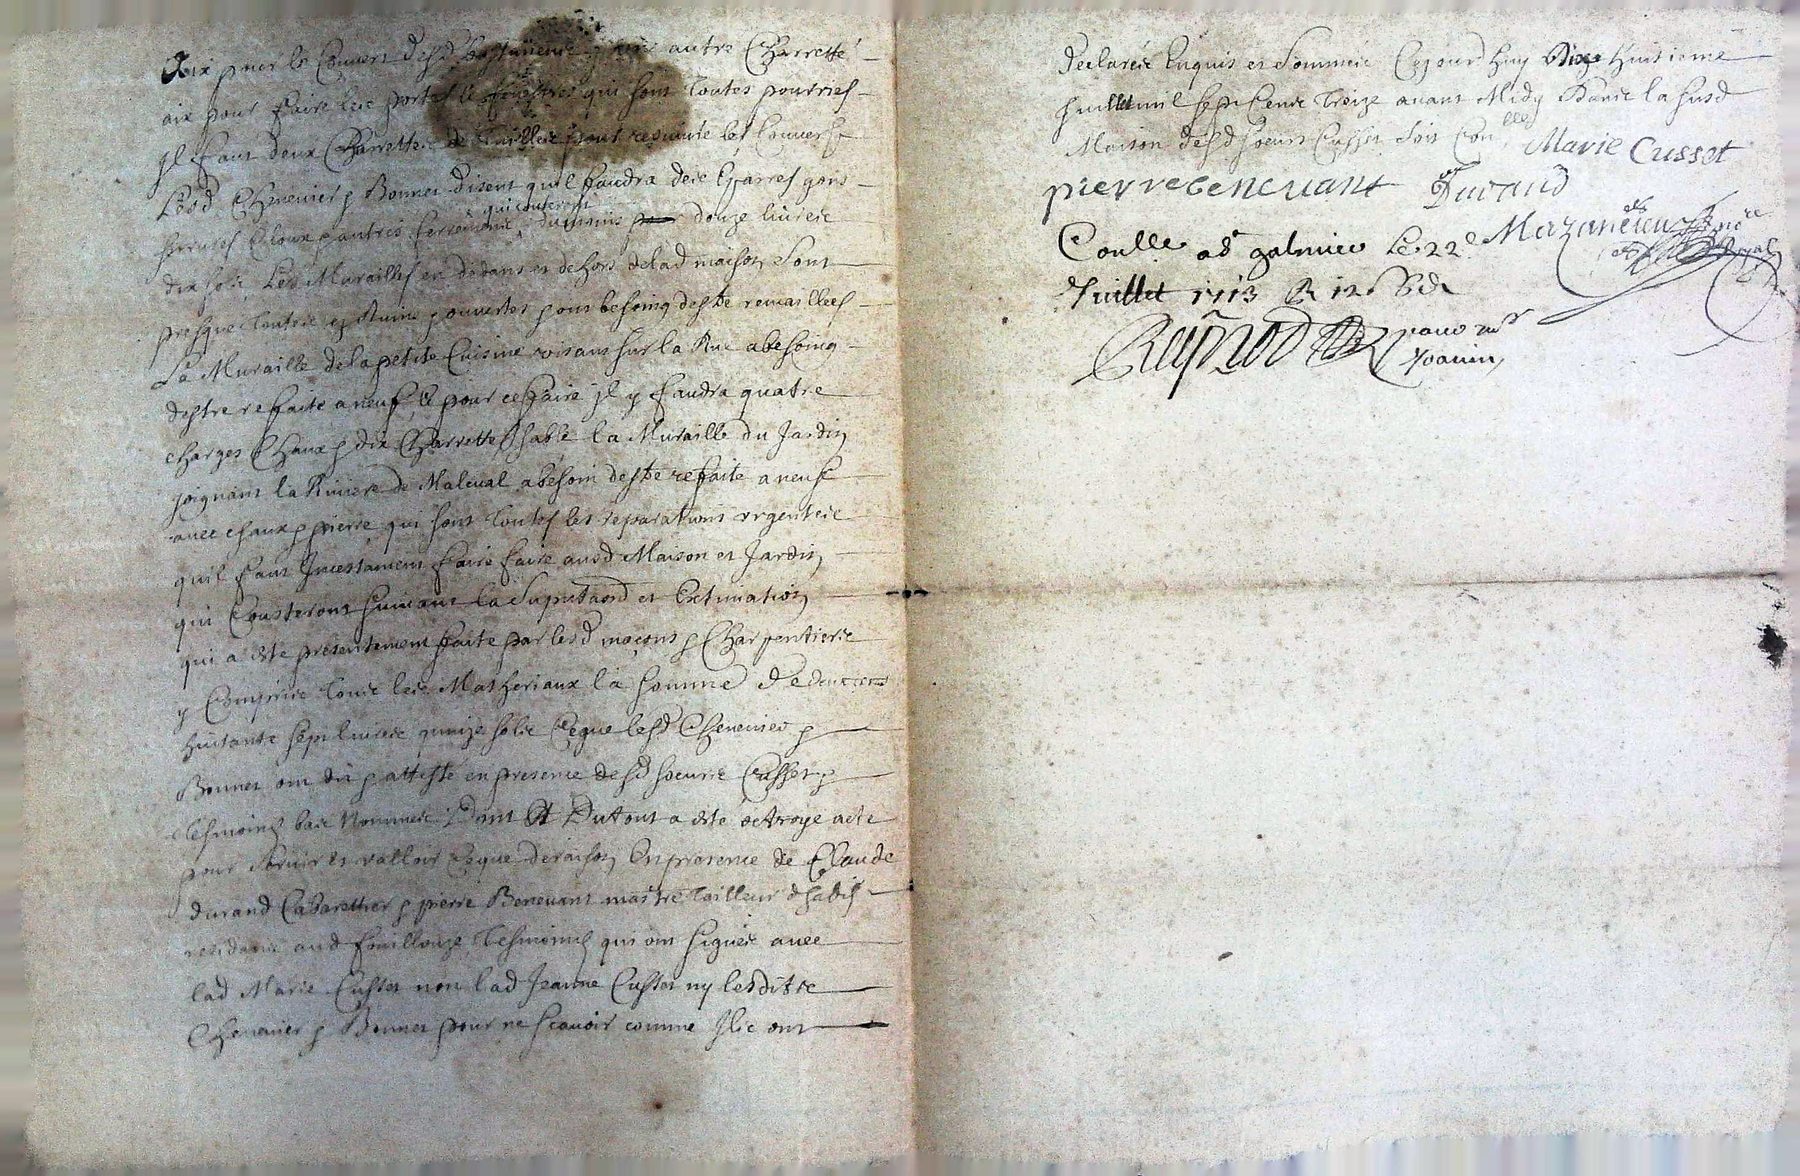 aix pour le Couvert desd. bastimens, une autre Charretté
aix pour faire les portes & fenestres qui sont toutes pourries
Jl faut deux Charrettes de tuilles pour les Couverts
Lesd Chenevier & Bonnet disent quil faudra des Eparres gons
serrures Cloux & autres ferremens qui cousteront dumoins douze livres
dix sols, Les Murailles en dedans et dehors delad maison Sont
presque toutes en Ruine & ouvertes & ont besoing destre remaillees
La Muraille de la petite Cuisine visant sur la Rue a besoing
destre refaite a neuf, & pour ce faire jl y faudra quatre
charges Chaux & dix Charrettes sable la Muraille du Jardin
joignant la Riviere de Maleval a besoin destre refaite a neuf
avec chaux & pierre, qui sont toutes les reparations urgentes
quil faut Incessament faire faire ausd Maison et Jardin
qui Cousteront suivant la Suputaōn et Extimation
qui a esté presentement faite par lesd maçons & Charpentiers
y Compris tous les Matheriaux la somme de deux cens
huitante sept livres quinze sols Ce que lesd Chenevier &
Bonnet ont dit & attesté en presence desd soeurs Cusset &
tesmoins bas Nommés Dont Et Dutout a esté octroyé acte
pour Servir et valloir Ceque de raison En presence de Claude
durand Cabarettier & pierre Benevant maistre tailleur dhabis
residans aud fouillouze tesmoins qui ont signés avec
lad Marie Cusset non lad Jeanne Cusset ny lesdittes
Chenavier & Bonnet pour ne scavoir comme Ils ont
declarés Enquis et Sommés Cejourdhuy Dixe Huitieme
Juillet mil sept Cents Treize avant Midy Dans la susd
Maison desd soeurs Cusset Soit Conllé Marie Cusset
pierre benevant Durand
Conllé a St galmier Le 22e Mazancieux
Juillet 1713 R 12 s 6 d
Raynod